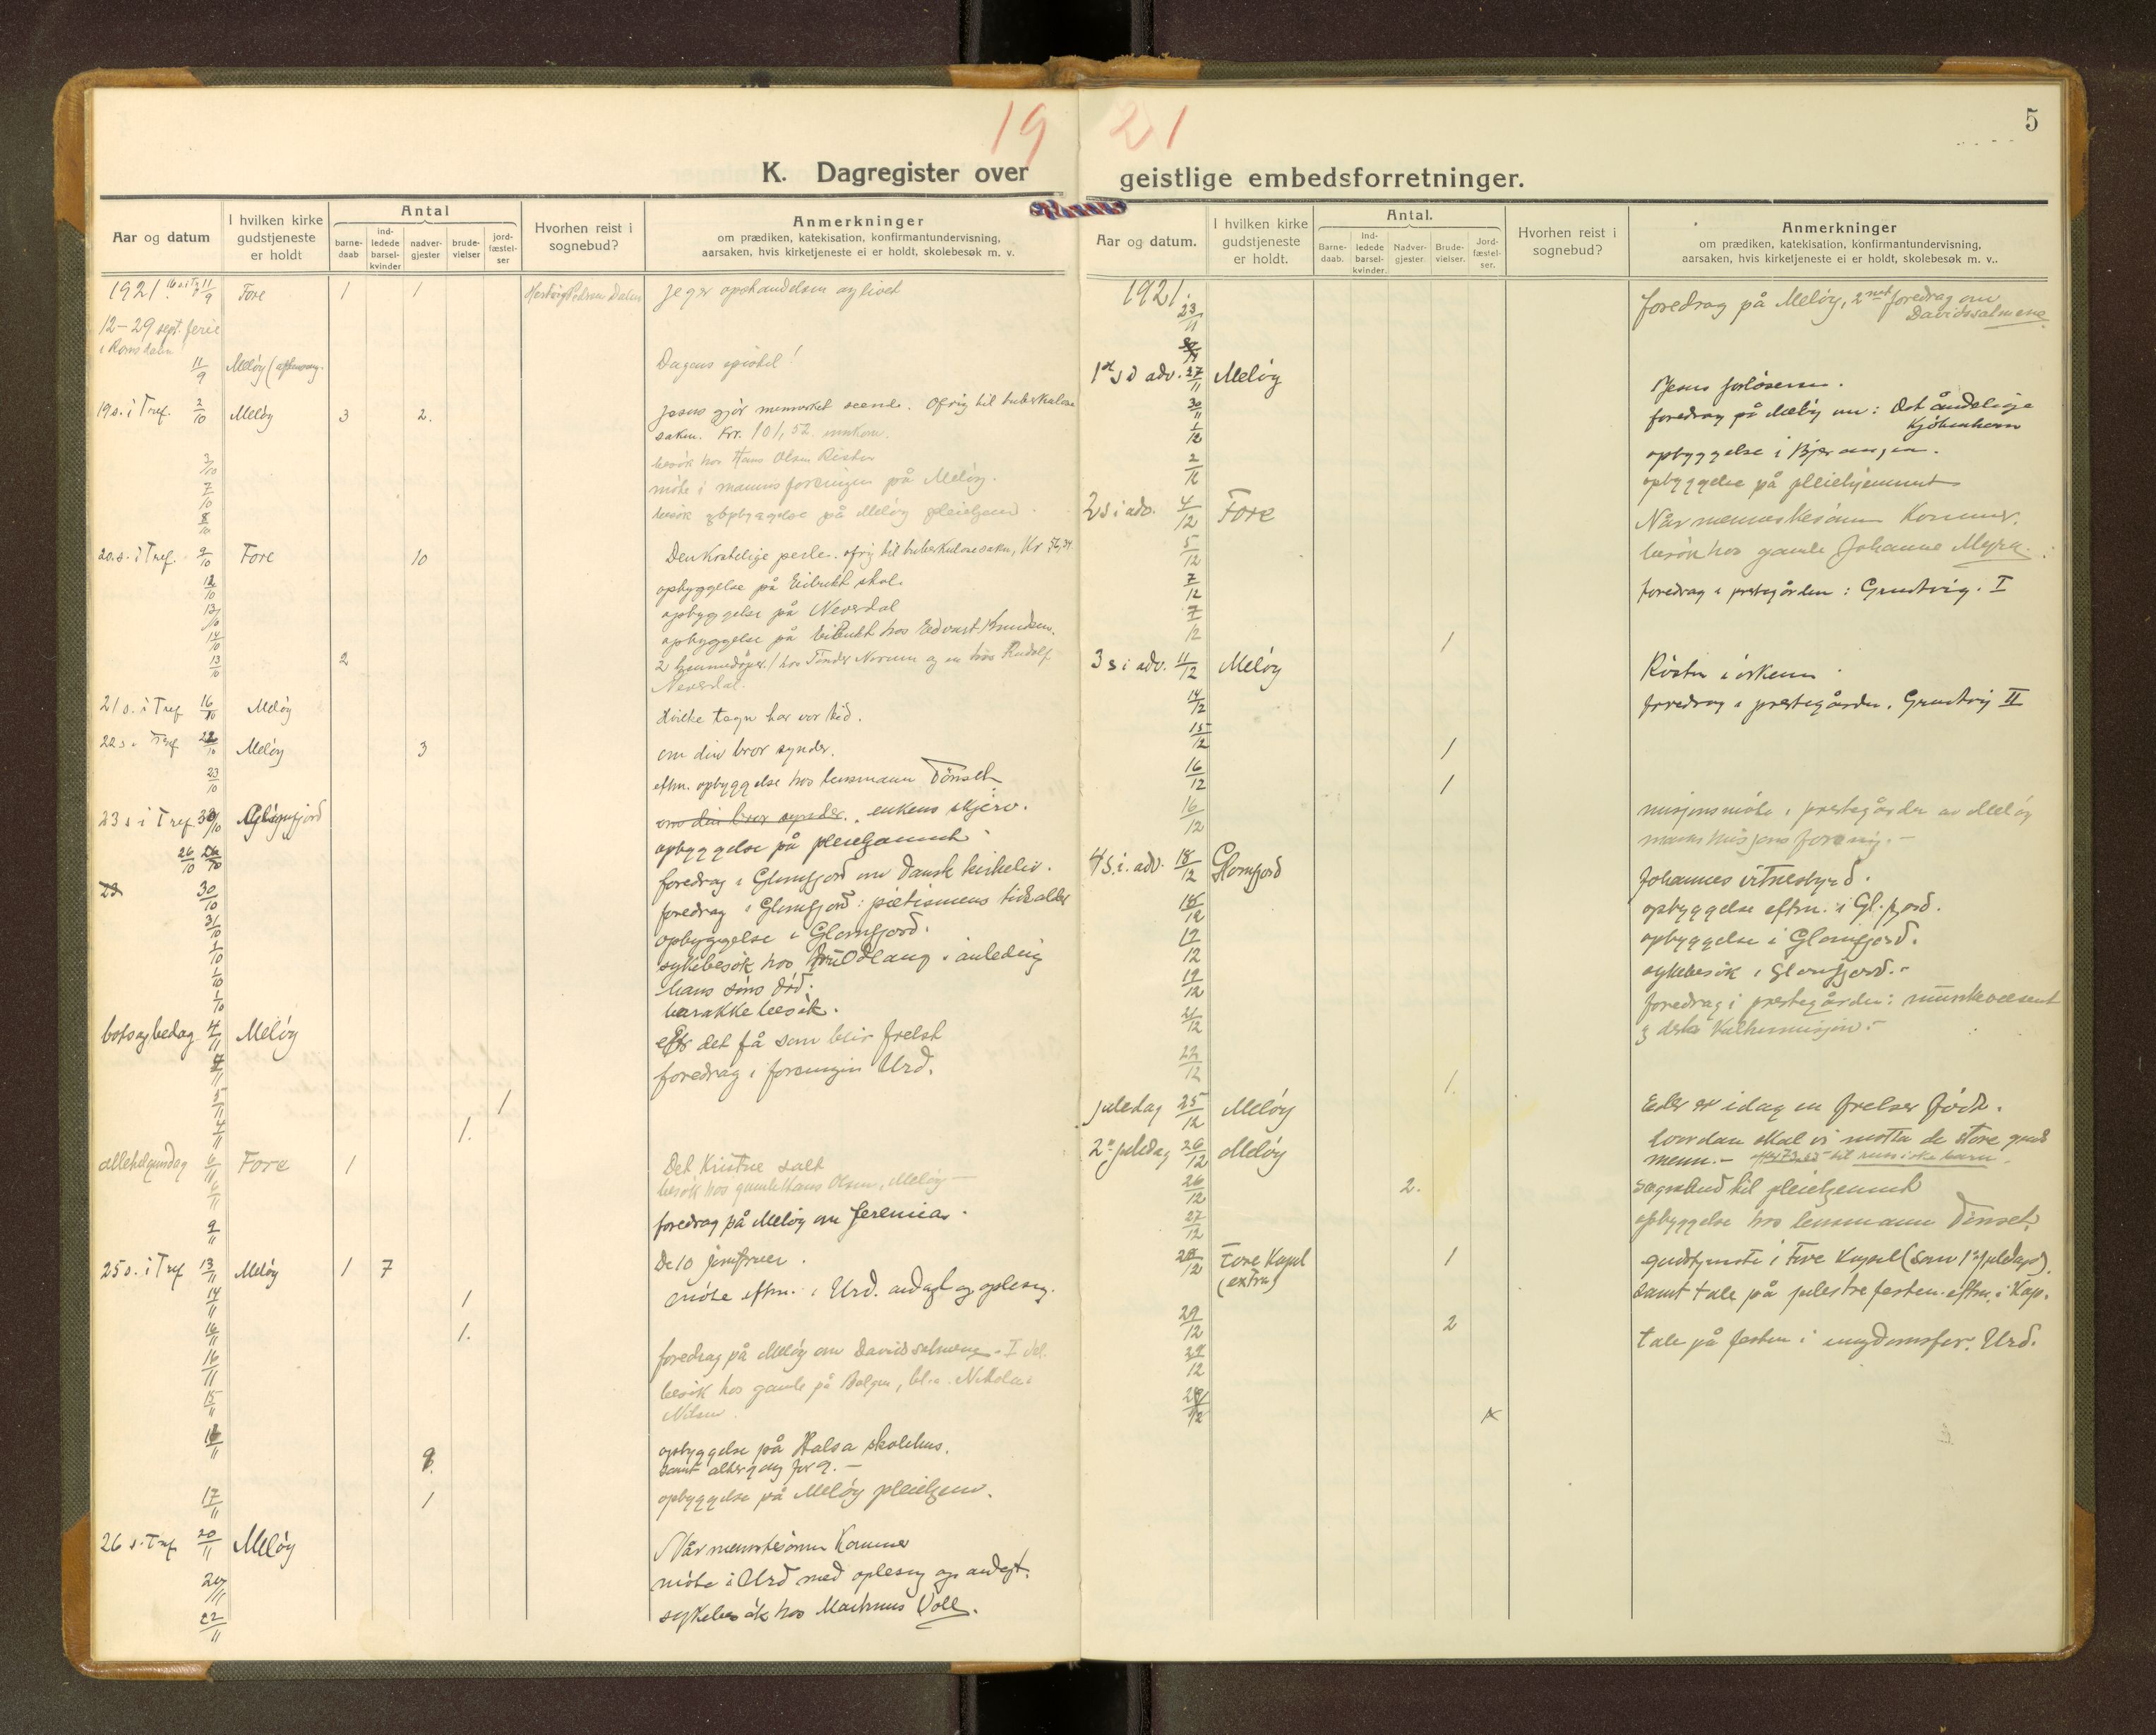 19 21
5
K. Dagregister over geistlige embedsforretninger.
Aar og datum
I hvilken kirke gudstjeneste er holdt
Antal
barne-daab
ind-ledede barsel-kvinder
nadver-gjester
brude-vielser
jord-fæstel-ser
Hvorhen reist i sognebud?
Anmerkninger
om prædiken, katekisation, konfirmantundervisning,
aarsaken, hvis kirketjeneste ei er holdt, skolebesøk m. v.
1921. 11/9 Fore 1 1 Jeg er opstandelsen og livet
12-29 sept. ferie
i Romsdalen
11/9 Meløy Dagens epistel!
19 s. i Tref. 2/10 Meløy 3 2. Jesus gjør mennesket seende. Ofring til tuberkulose
saken. Kr. 101,52 innkom.
besøk hos Hans Olsen
3/10
møte i mannsforeningen på Meløy.
7/10
besøk opbyggelse på Meløy pleiehjem
8/10
20. s. i Tref. 9/10 Fore 10 Den kostelige perle. ofring til tuberkulosesaken, Kr
12/10 opbyggelse på skole
13/10 opbyggelse på Neverdal
14/10 opbyggelse på hos Edvart Knudsen.
13/10 2 2 hjemmedøper. 1 hos og en hos Rudolf
Neverdal.
21 s. i Tref 16/10 Meløy Hvilke tegn har vor tid.
22 s. i Tref 22/10 Meløy 3 om din bror synder.
23/10 eftm. opbyggelse hos lensmann Tönset
23 s i Tref 30/10 Glomfjord om din bror synder. enkens skjerv.
26/10 opbyggelse på pleiehjemmet
30/10 foredrag i Glomfjord om Dansk kirkeliv.
foredrag i Glomfjord: pietismens tidsalder
31/10
opbyggelse i Glomfjord.
1/10
sykebesøk hos i anledning
1/10
hans søns død.
1/10
barakkebesøk.
bots og bededag 4/11 Meløy er det få som blir frelst
foredrag i foreningen Urd.
5/11 1
4/11 1.
allehelgensdag 6/11 Fore 1 Det kristne salt
6/11 besøk hos gamle Hans Olsen, Meløy
9/11 foredrag på Meløy om Jeremias.
25 s. i Tref 13/11 Meløy 1 7 De 10 jomfruer.
14/11 1 møte eftm. i Urd. andagt og oplesng.
16/11 1.
16/11 foredrag på Meløy om Davidssalmene - I del.
15/11 besøk hos gamle på Bolgen, bl.a. Nikolai
Nilsen.
16/11 9. opbyggelse på Halsa skolehus.
samt altergang for 9. -
17/11 1 opbyggelse på Meløy pleiehjem.
26 s. Tref 20/11 Meløy Når menneskesønnen kommer
20/11 møte i Urd med oplesng og andagt.
22/11 sykebesøk hos Martinus Voll.
Aar og datum.
I hvilken kirke gudstjeneste er holdt.
Antal.
Barne-daab.
ind-ledede barsel-kvinder.
Nadver-gjester.
Brude-vielser.
Jord-fæstel-ser.
Hvorhen reist i sognebud?
Anmerkninger
om prædiken, katekisation, konfirmantundervisning,
aarsaken, hvis kirketjeneste ei er holdt, skolebesøk m. v..
1921.
23/11 foredrag på Meløy, 2net foredrag om
Davidssalmene
1ste s d adv. 27/11 Meløy Jesus forløseren.
30/11 foredrag på Meløy om: Det åndelige
Kjøbenhavn
1/12 opbyggelse i Bjærangen.
2/12 opbyggelse på pleiehjemmet
2 s i adv. 4/12 Fore Når menneskesønnen kommer.
5/12 besøk hos gamle Johanne Myra.
7/12 foredrag i prestegården: Grundtvig. I
7/12 1
3 s i adv. 11/12 Meløy Røsten i ørkenen
14/12 foredrag i prestegården. Grundtvig II
15/12 1
16/12 1
16/12 misjonsmøte i prestegården av Meløy
manns misjons forening. -
4 s. i. adv. 18/12 Glomfjord Johannes vitnesbyrd.
18/12 opbyggelse eftm. i Gl.fjord.
19/12 opbyggelse i Glomfjord.
19/12 sykebesøk i Glomfjord.-
21/12 foredrag i prestegården: munkevæsenet
22/12 1.
juledag 25/12 Meløy Eder er idag en frelser født.
2n juledag 26/12 Meløy hvordan skal vi motta de store guds
menn. - til russiske barn.
26/12 2. sognebud til pleiehjemmet
27/12 opbyggelse hos lensmann Tönset.
28/12 Fore Kapel 1 gudstjeneste i Fore Kapel (som 1ste juledag).
(extra) samt tale på juletrefesten eftm. i Kap.
29/12 2
29/12 tale på festen i ungdomsfor. Urd.
28/12